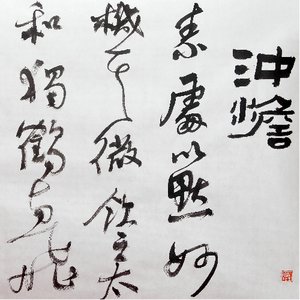 沖澹
素處以默妙
機其微飲之太
和獨鶴與飛